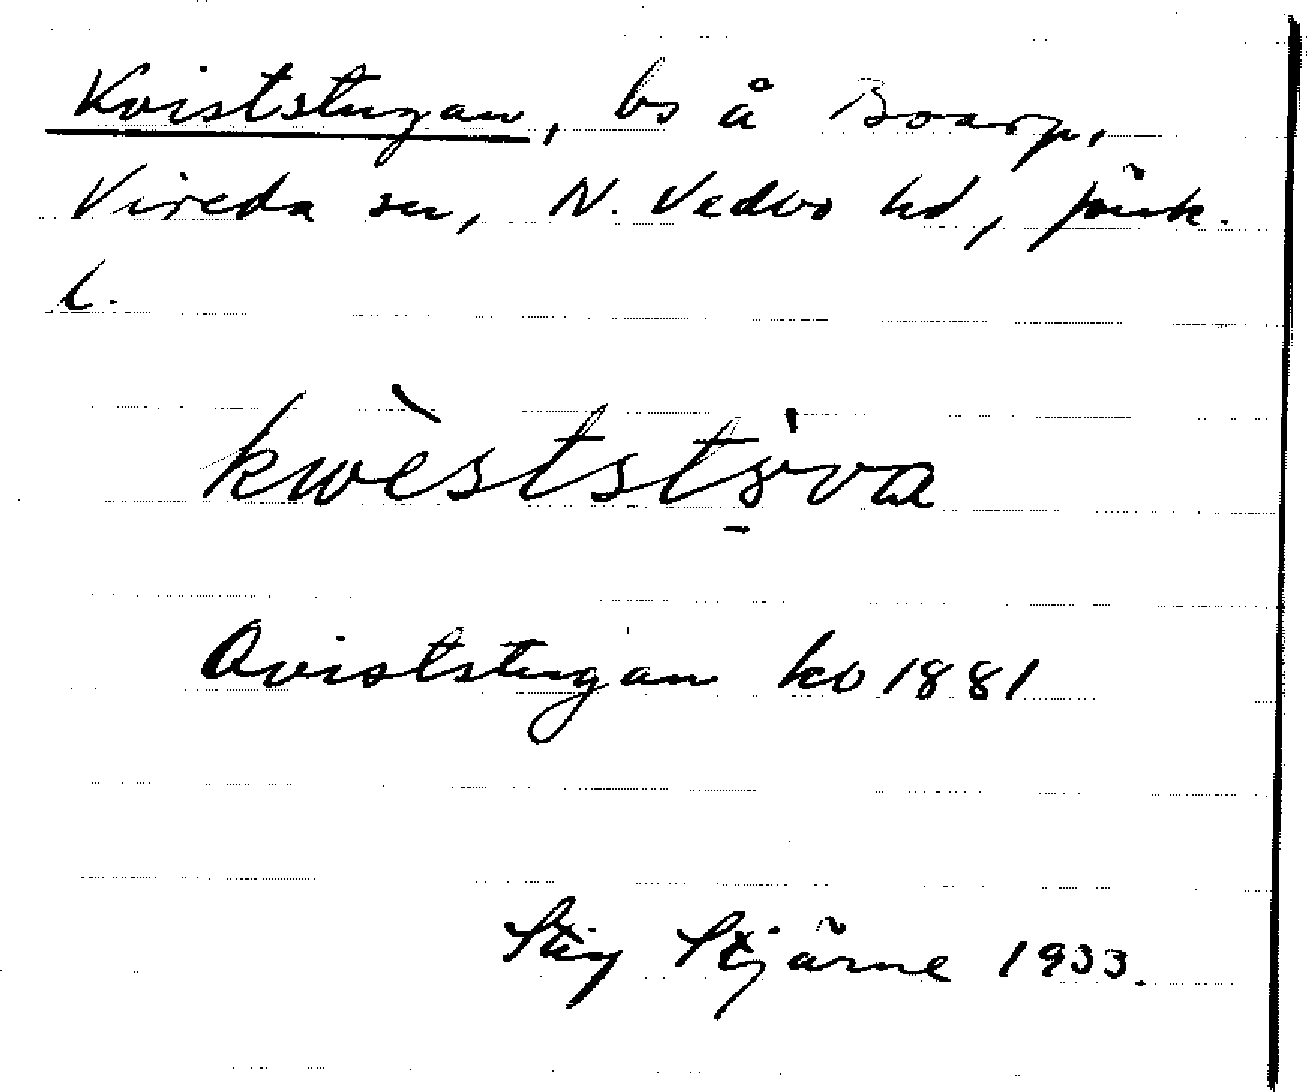 Kviststugan, bs å Boarp,
Vireda sn, N. Vedbo hd, Jönk.
l.
kwèststỳva
Qviststugan kb 1881
Stig Stjärne 1933.